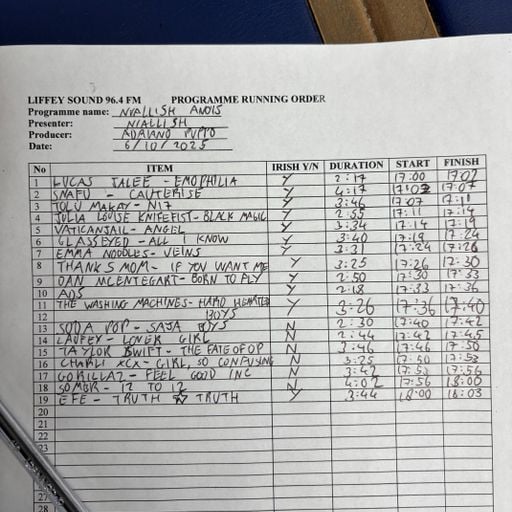 LIFFEY SOUND 96.4 FM PROGRAMME RUNNING ORDER
Programme name: NIALLISH ANOIS
Presenter: NIALLISH
Producer: ADRIANO PUPPO
Date: 6/10/2025
No ITEM IRISH Y/N DURATION START FINISH
1 LUCAS JALEE - EMOPHILIA Y 2:17 17:00 17:02
2 SNAFU - CAUTERISE Y 4:17 17:02 17:07
3 TOLU MAKAY - N17 Y 3:46 17:07 17:11
4 JULIA LOUISE KNIFEFIST - BLACK MAGIC Y 2:55 17:11 17:14
5 VATICANJAIL - ANGEL Y 3:34 17:14 17:19
6 GLASSEYED - ALL I KNOW Y 3:40 17:19 17:24
7 EMMA NOODLES - VEINS Y 3:31 17:24 17:26
8 THANKS MOM - IF YOU WANT ME Y 3:25 17:26 17:30
9 DAN MCENTEGART - BORN TO FLY Y 2:50 17:30 17:33
10 ADS 2:18 17:33 17:36
11 THE WASHING MACHINES - HARD HEARTED Y 3:26 17:36 17:40
12 BOYS
13 SODA POP - SAJA BOYS N 2:30 17:40 17:42
14 LAUFEY - LOVER GIRL N 2:44 17:42 17:45
15 TAYLOR SWIFT - THE FATE OF OP N 3:46 17:46 17:50
16 CHARLI XCX - GIRL, SO CONFUSING N 3:25 17:50 17:53
17 GORILLAZ - FEEL GOOD INC N 3:42 17:53 17:56
18 SOMBR - 12 TO 12 N 4:02 17:56 18:00
19 EFE - TRUTH TRUTH Y 3:44 18:00 18:03
20
21
22
23
27
28